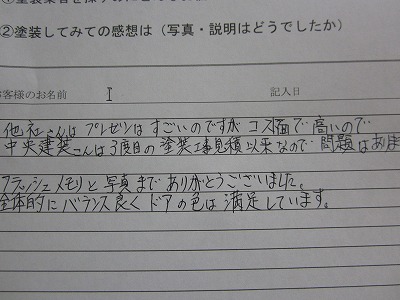 ②塗装してみての感想は(写真・説明はどうでしたか)
お客様のお名前
記入日
他社さんは プレゼンは すごいのですが コスト面で 高いので
中央建装さんは 3度目の 塗装工事見積以来なので 問題はありま
フラッシュメモリと 写真まで ありがとうございました。
全体的に バランス良く ドアの色は 満足しています。